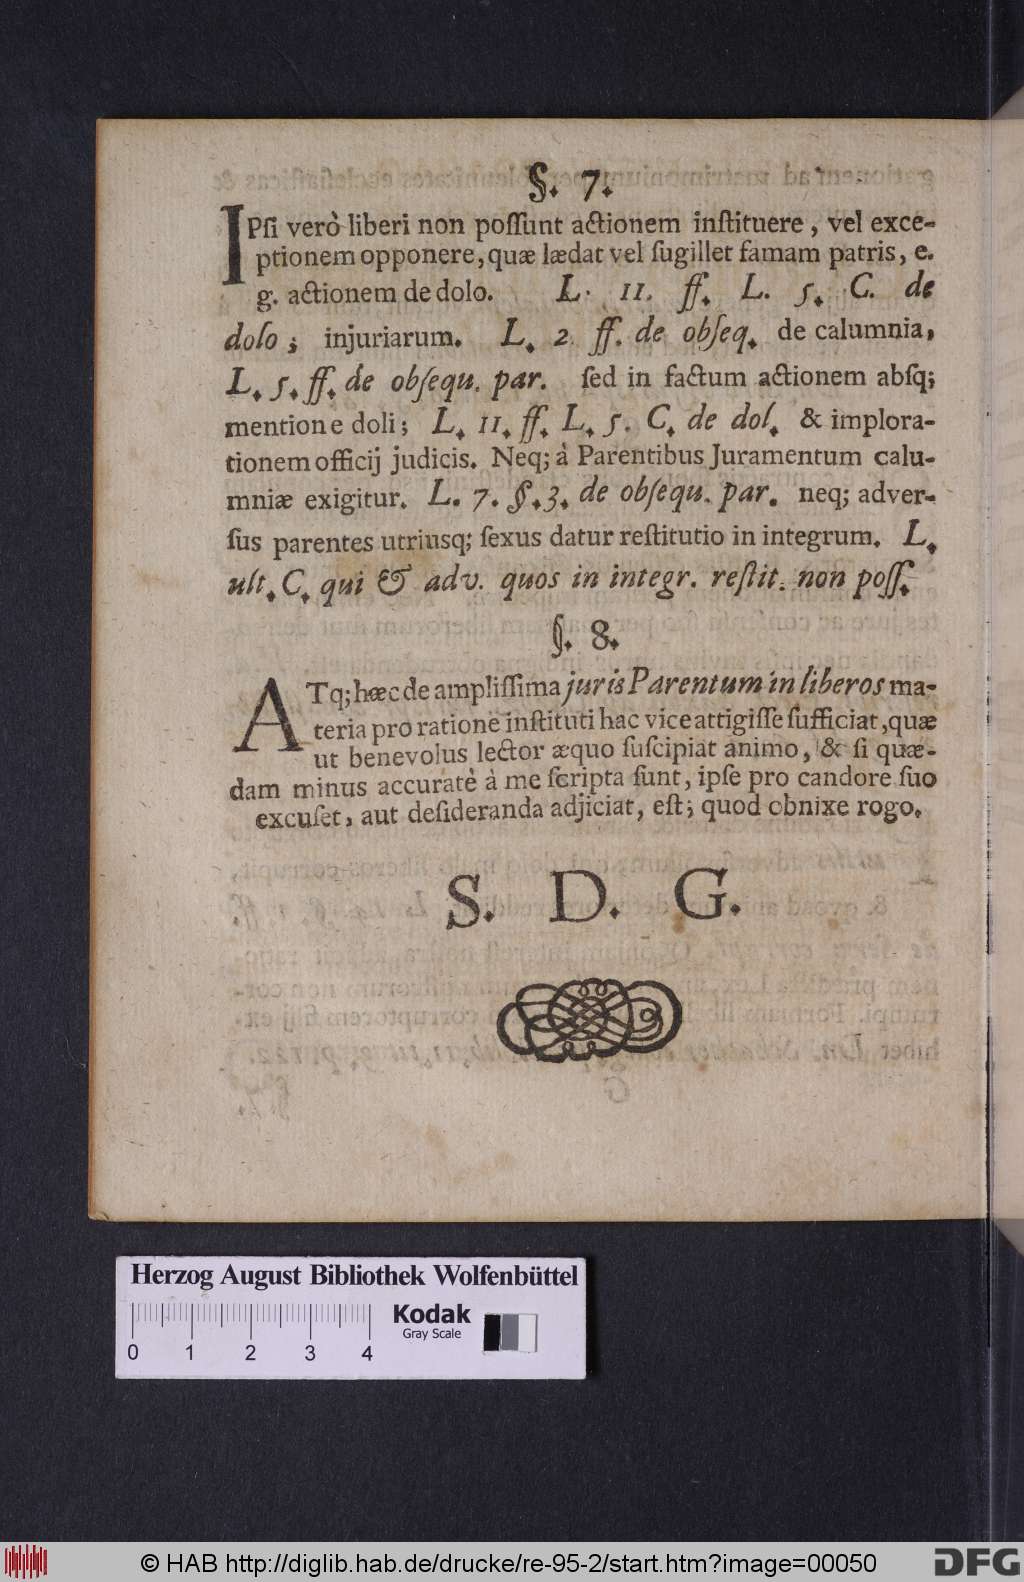 §. 7.
IPſi verò liberi non poſſunt actionem inſtituere, vel exce-
ptionem opponere, quæ lædat vel ſugillet famam patris, e.
g. actionem de dolo. L. 11. ff. L. 5. C. de
dolo; injuriarum. L. 2. ff. de obſeq. de calumnia,
L. 5. ff. de obſequ. par. ſed in factum actionem abſq;
mentione doli; L. 11. ff. L. 5. C. de dol. & implora-
tionem officij judicis. Neq; à Parentibus Juramentum calu-
mniæ exigitur. L. 7. §. 3. de obſequ. par. neq; adver-
ſus parentes utriusq; ſexus datur reſtitutio in integrum. L.
ult. C. qui & adv. quos in integr. reſtit. non poſſ.
§. 8.
ATq; hæc de ampliſſima juris Parentum in liberos ma-
teria pro ratione inſtituti hac vice attigiſſe ſufficiat, quæ
ut benevolus lector æquo ſuſcipiat animo, & ſi quæ-
dam minus accuratè à me ſcripta ſunt, ipſe pro candore ſuo
excuſet, aut deſideranda adjiciat, eſt; quod obnixe rogo.
S. D. G.
Herzog August Bibliothek Wolfenbüttel
Kodak
Gray Scale
0 1 2 3 4
© HAB http://diglib.hab.de/drucke/re-95-2/start.htm?image=00050
DFG